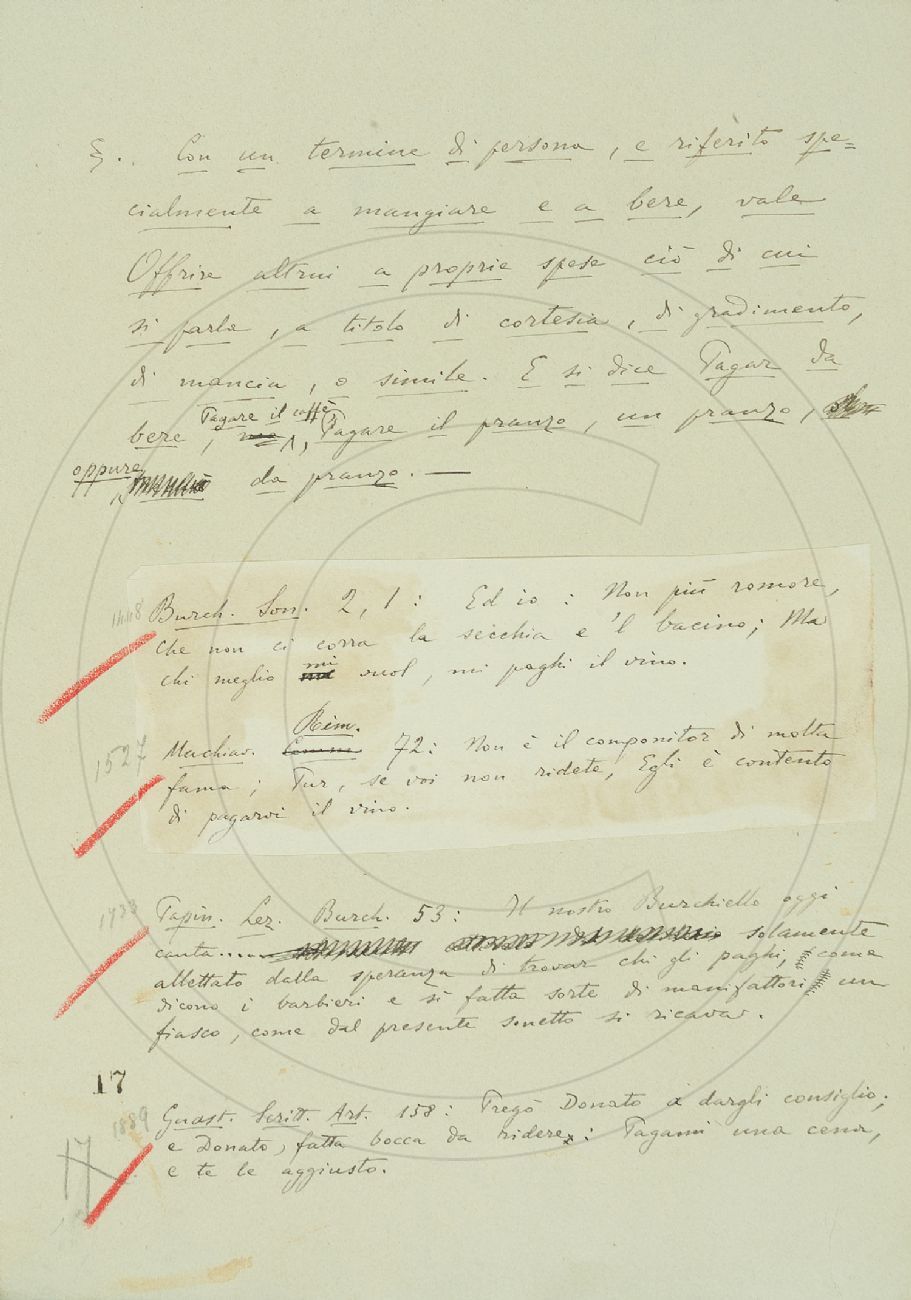 §. Con un termine di persona, e riferito spe=
cialmente a mangiare e a bere, vale
Offrire altrui a proprie spese ciò di cui
si parla, a titolo di cortesia, di gradimento,
di mancia, o simile. E si dice Pagar da
bere, Pagare il caffè, Pagare il pranzo, un pranzo,
oppure da pranzo. —
1448 Burch. Son. 2, 1: Ed io: Non più romore,
che non ci corra la secchia e 'l bacino; Ma
chi meglio mi vuol, mi paghi il vino.
1527 Machiav. Rim. 72: Non è il componitor di molta
fama; Pur, se voi non ridete, Egli è contento
di pagarvi il vino.
1733 Papin. Lez. Burch. 53: Il nostro Burchiello oggi
canta..... solamente
allettato dalla speranza di trovar chi gli paghi, come
dicono i barbieri e sì fatta sorte di manifattori, un
fiasco, come dal presente sonetto si ricava.
17
1859 Guast. Scritt. Art. 158: Pregò Donato a dargli consiglio;
e Donato, fatta bocca da ridere: Pagami una cena,
e te le aggiusto.
17